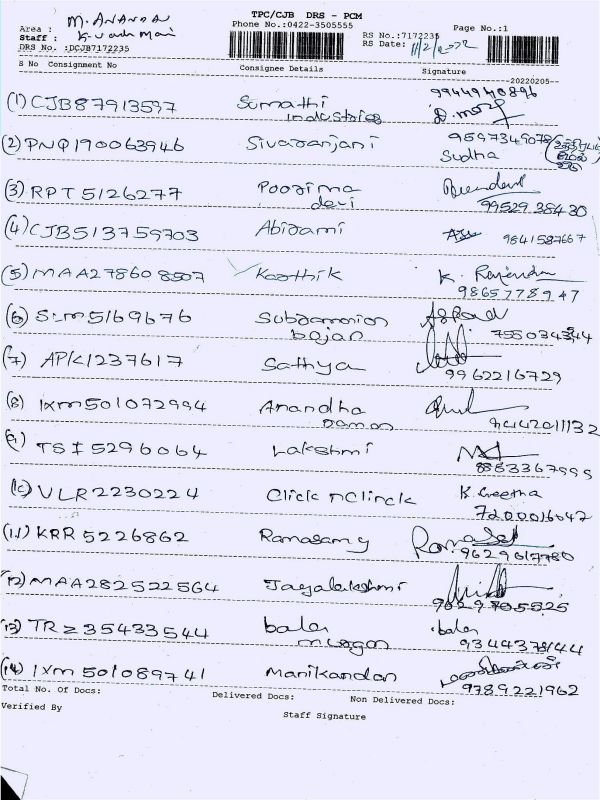 TPC/CJB DRS - PCM
Area : M. ANANDAN Phone No.:0422-3505555 Page No.:1
Staff : RS No.:7172235
DRS No. :DCJB7172235 RS Date: 11/2/2022
S No Consignment No Consignee Details Signature
20220205--
(1) CJB87913597 Sumathi 9944940896
industries
(2) PNQ190063946 Sivaranjani 9597349078
Sudha
(3) RPT5126277 Poorima
devi 9952938430
(4) CJB513759703 Abirami 9841587667
(5) MAA278608507 Karthik K. Rajendran
9865778947
(6) SLM5169676 Subramanion
bojan
(7) APK1237617 Sathya
9962216729
(8) IXM501072994 Anandha
raman 94442011132
(9) TSI5296064 Lakshmi
8883367999
(10) VLR2230224 Click nClinck K. Geetha
7200016047
(11) KRR5226862 Ramasamy
9629617780
(12) MAA282522564 Jayalakshmi
9629705525
(13) TRZ35433544 bala bala
murgan 9344378144
(14) IXM501089741 Manikandan
9789221962
Total No. Of Docs: Delivered Docs: Non Delivered Docs:
Verified By
Staff Signature